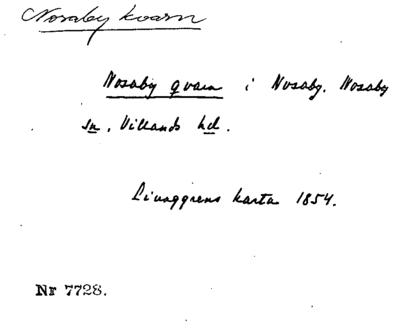 Nosaby kvarn
Nosaby qvarn i Nosaby. Nosaby
sn, Villands hd.
Ljunggrens karta 1854.
Nr 7728.